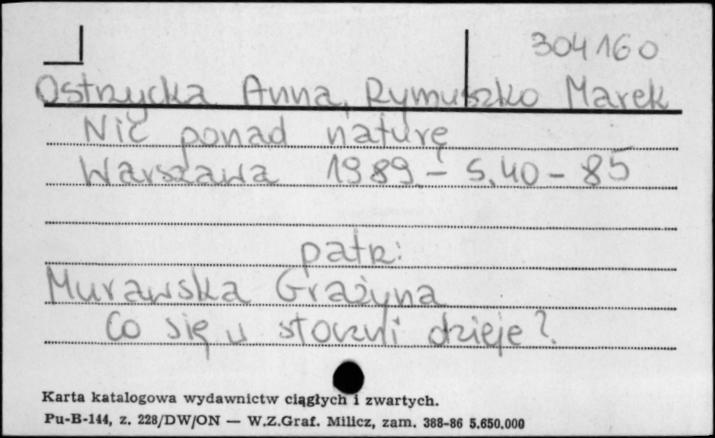 304160
Ostrzycka Anna, Rymuszko Marek
Nic ponad naturę
Warszawa 1989.- s. 40-85
patrz:
Murawska Grażyna
Co się w stoczni dzieje?
Karta katalogowa wydawnictw ciągłych i zwartych.
Pu-B-144, z. 228/DW/ON — W.Z.Graf. Milicz, zam. 388-86 5.650.000